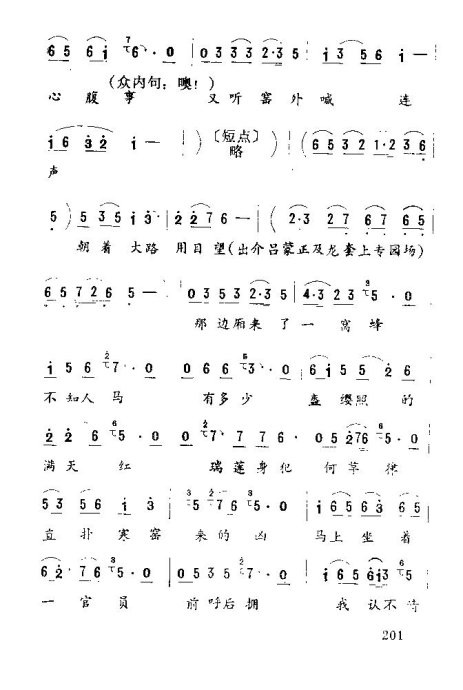 6 5 6 i 7 6· 0 | 0 3 3 3 2·3 5 | i 3 5 6 i — |
(众内句：噢！)
心 腹 事 又 听 窑 外 喊 连
i 6 3 2 i — ) 〔短点〕略 ( | 6 5 3 5 2 1·2 3 6 |
声
5 ) 5 3 5 i 3 | 2 2 7 6 — | ( 2·3 2 7 6 7 6 5 |
朝 着 大路 用目望(出介吕蒙正及龙套上专园场)
6 5 7 2 6 5 — ) | 0 3 5 3 2·3 5 | 4·3 2 3 5· 0 |
那边厢来了一窝蜂
i 5 6 2 7· 0 | 0 6 6 5 3· 0 | 6 i 5 5 2 6 |
不知人马 有多少 盔缨照的
2 2 6 6 5· 0 | 2 7· 7 7 6· | 0 5 2 7 6 5· 0 |
满天红 瑞莲身犯何草律
5 3 5 6 i 3 | 3 5· 7 6 5 | i 6 5 6 3 5 |
直扑寒窑 来的凶 马上坐着
6 2· 7 6 3 5· 0 | 0 5 3 5 7· 0 | i 6 5 6 i 3 5 |
一官员 前呼后拥 我认不
201